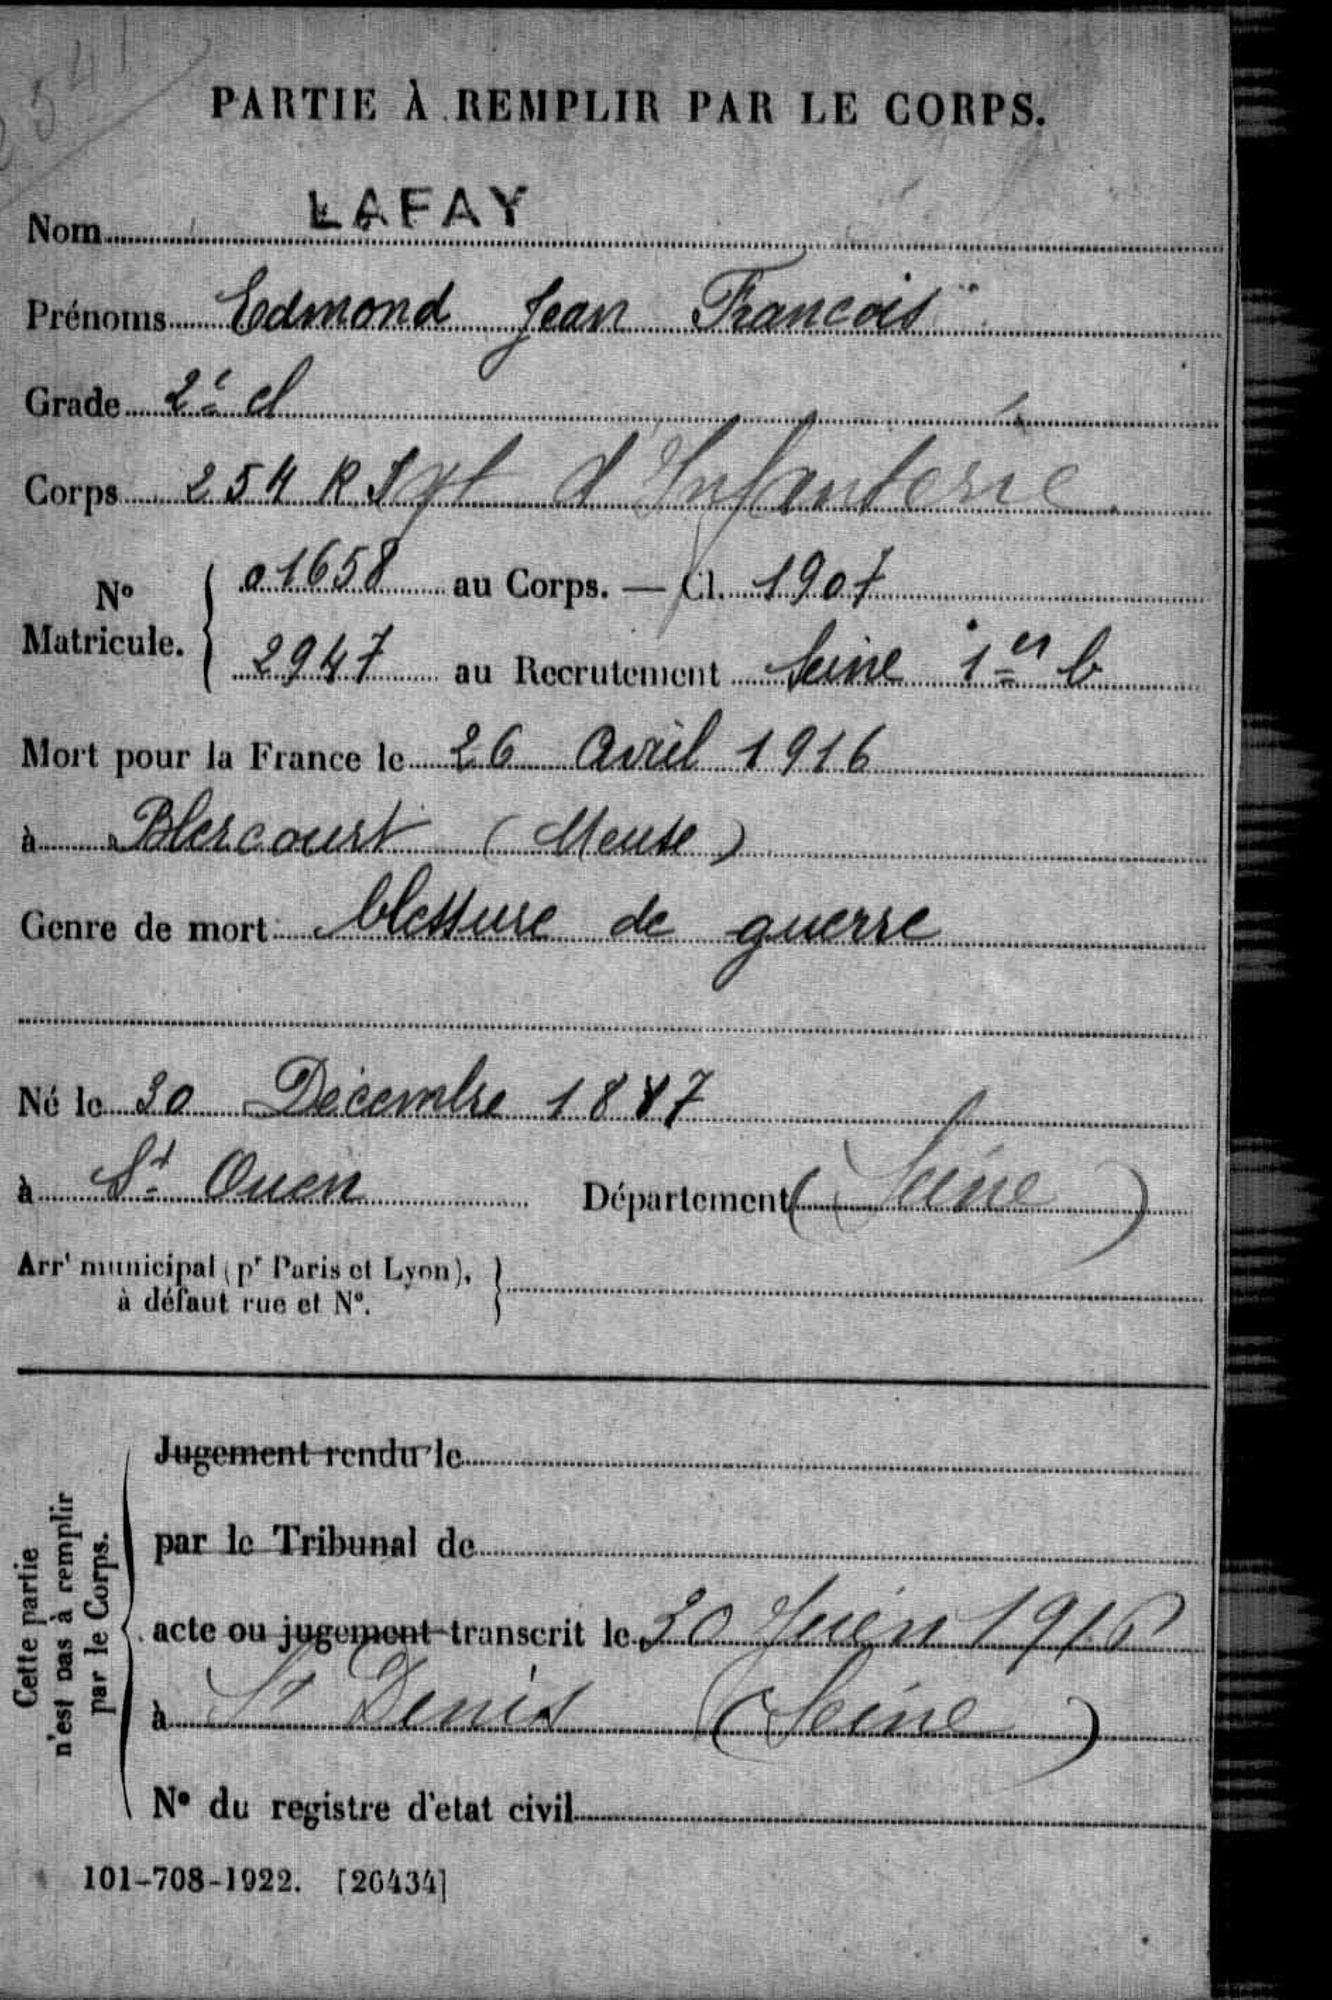 PARTIE À REMPLIR PAR LE CORPS.
Nom LAFAY
Prénoms Edmond Jean Francois
Grade 2e cl
Corps 254 R I gt d'Infanterie
No Matricule. 01658 au Corps. — Cl. 1907
2947 au Recrutement Seine 1er b
Mort pour la France le 26 Avril 1916
à Blercourt (Meuse)
Genre de mort blessure de guerre
Né le 30 Décembre 1887
à St Ouen Département (Seine)
Arrt municipal (pr Paris et Lyon),
à défaut rue et No.
Cette partie
n'est pas à remplir
par le Corps.
Jugement rendu le
par le Tribunal de
acte ou jugement transcrit le 30 Juin 1916
à St Denis (Seine)
No du registre d'etat civil
101-708-1922. [26434]